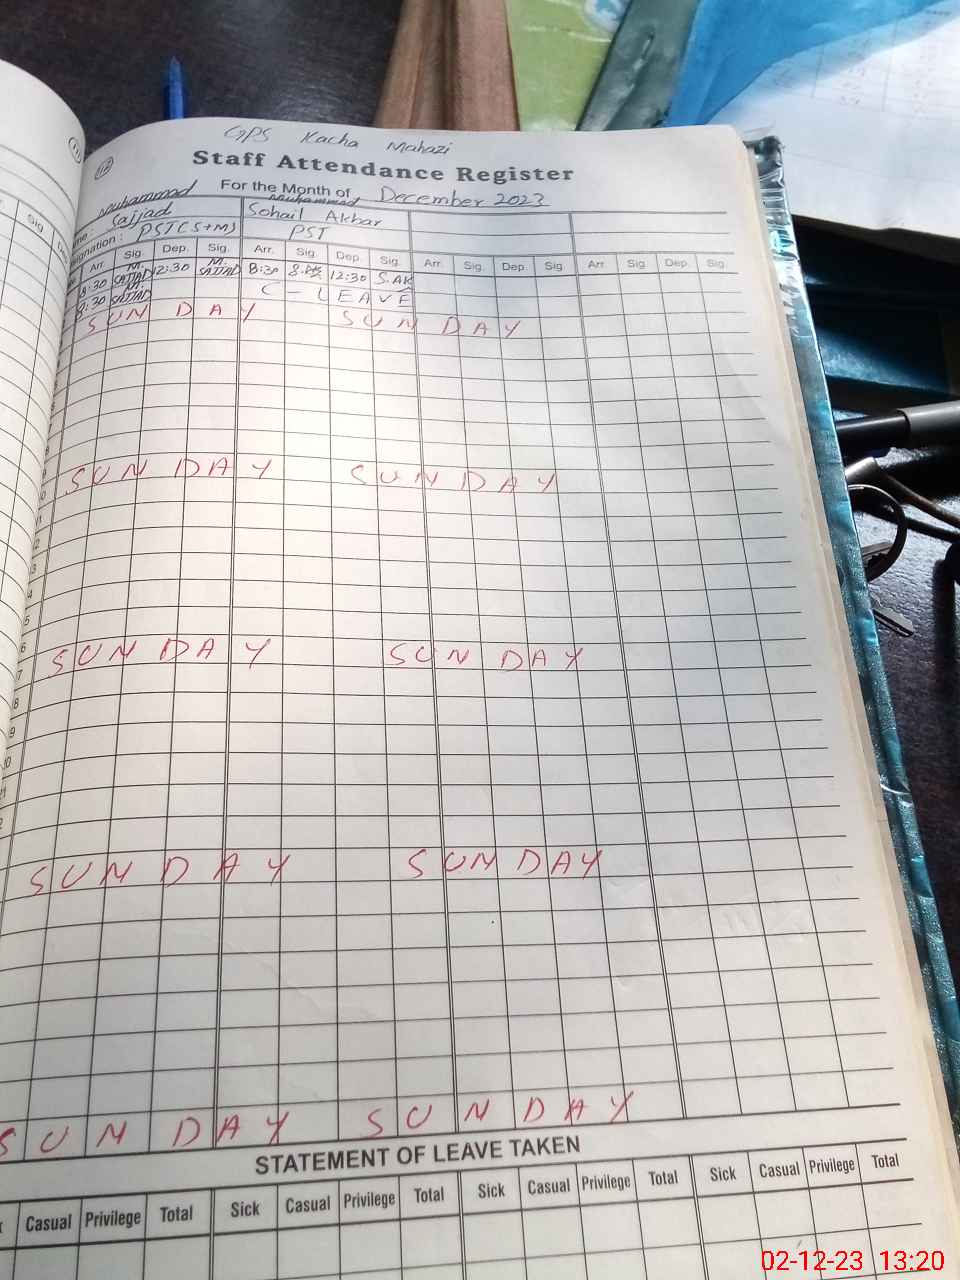 GPS Kacha Mahazi
Staff Attendance Register
For the Month of December 2023
Muhammad Sajjad
Muhammad Sohail Akbar
Designation : PST (S+M)
PST
Arr. Sig. Dep. Sig. Arr. Sig. Dep. Sig. Arr. Sig. Dep. Sig. Arr. Sig. Dep. Sig.
8:30 M. SAJJAD 12:30 M. SAJJAD 8:30 12:30 S.AK
8:30 M. SAJJAD C-LEAVE
SUNDAY SUNDAY
SUNDAY SUNDAY
SUNDAY SUNDAY
SUNDAY SUNDAY
SUNDAY SUNDAY
STATEMENT OF LEAVE TAKEN
Casual Privilege Total Sick Casual Privilege Total Sick Casual Privilege Total Sick Casual Privilege Total
02-12-23 13:20